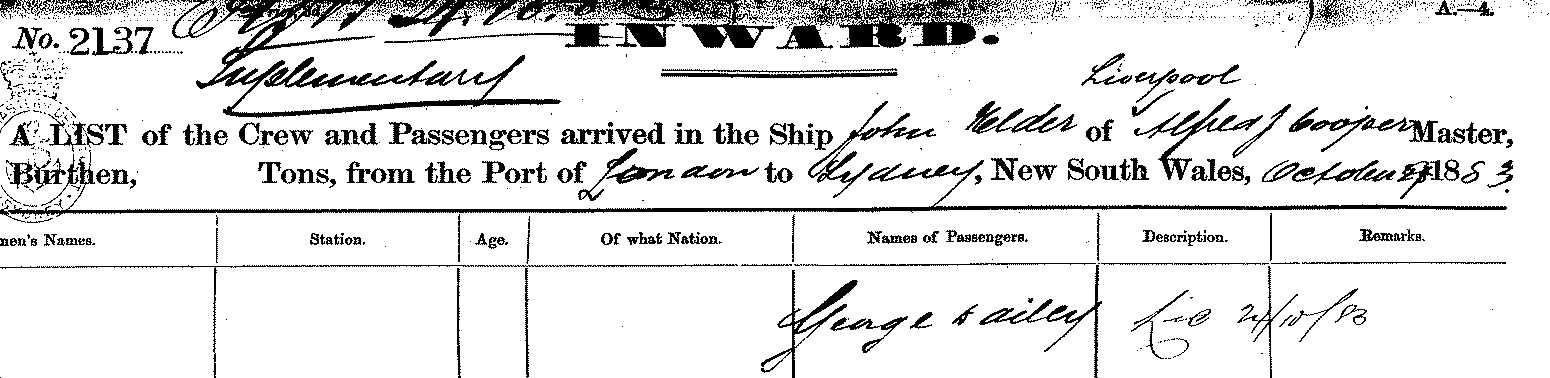 A.—4.
No. 2137
INWARD.
Suplementary
Liverpool
A LIST of the Crew and Passengers arrived in the Ship John Elder of Alfred J Cooper Master,
Burthen, Tons, from the Port of London to Sydney, New South Wales, October 1883.
men's Names. Station. Age. Of what Nation. Names of Passengers. Description. Remarks.
George Dailey 24/10/83